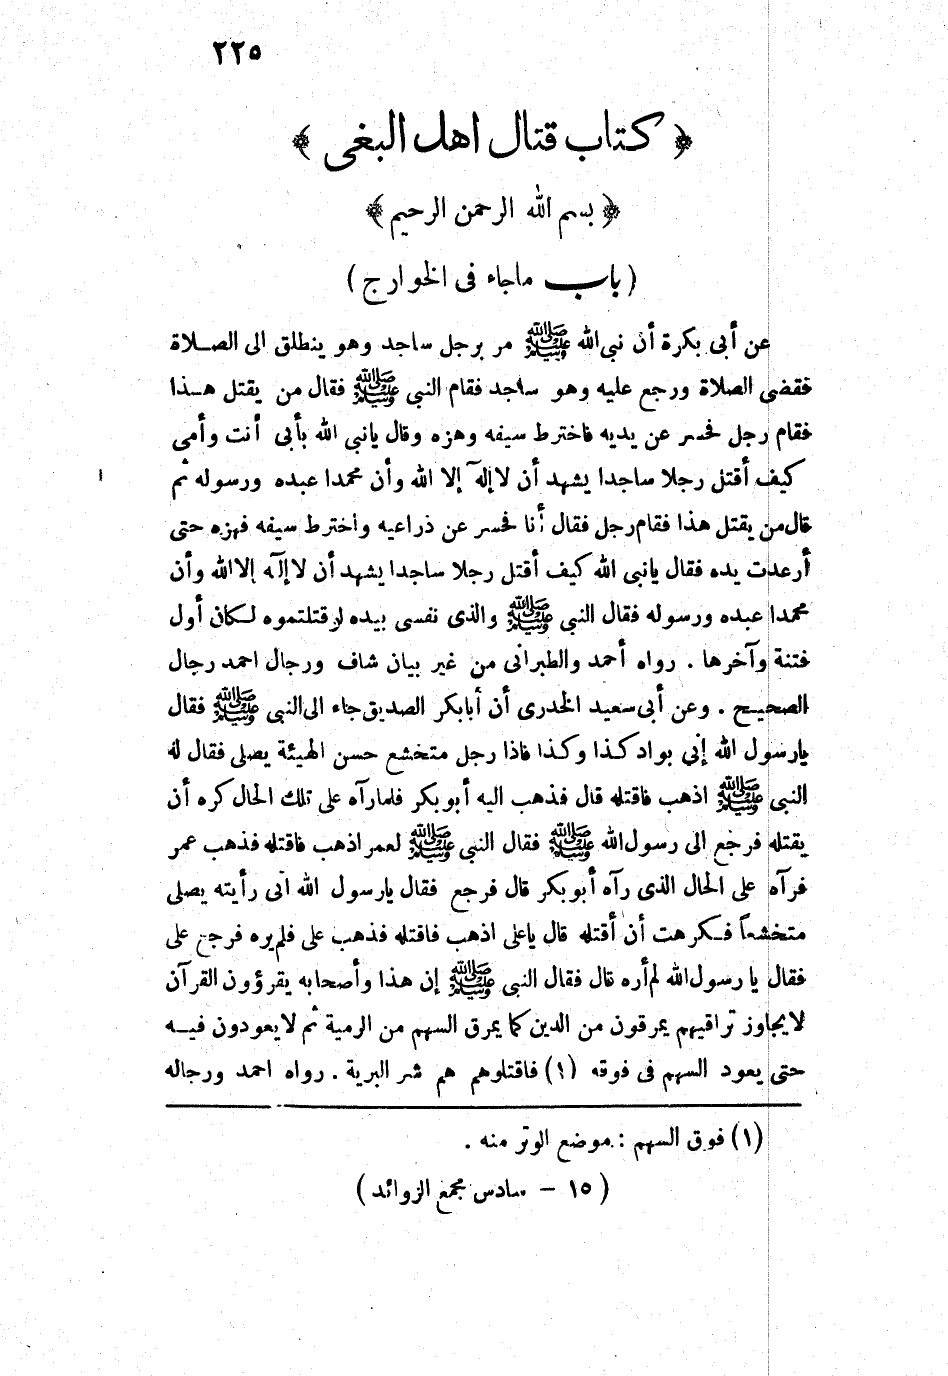 ٢٢٥
﴿ كتاب قتال اهل البغى ﴾
﴿ بسم الله الرحمن الرحيم ﴾
( باب ماجاء فى الخوارج )
عن أبى بكرة أن نبى الله ﷺ مر برجل ساجد وهو ينطلق الى الصلاة
فقضى الصلاة ورجع عليه وهو ساجد فقام النبى ﷺ فقال من يقتل هذا
فقام رجل فحسر عن يديه فاخترط سيفه وهزه وقال يانبى الله بأبى أنت وأمى
كيف أقتل رجلا ساجدا يشهد أن لاإله إلا الله وأن محمدا عبده ورسوله ثم
قال من يقتل هذا فقام رجل فقال أنا فحسر عن ذراعيه واخترط سيفه فهزه حتى
أرعدت يده فقال يانبى الله كيف أقتل رجلا ساجدا يشهد أن لاإله إلاالله وأن
محمدا عبده ورسوله فقال النبى ﷺ والذى نفسى بيده لوقتلتموه لكان أول
فتنة وآخرها . رواه أحمد والطبرانى من غير بيان شاف ورجال احمد رجال
الصحيح . وعن أبى سعيد الخدرى أن أبابكر الصديق جاء الى النبى ﷺ فقال
يارسول الله إني بواد كذا وكذا فاذا رجل متخشع حسن الهيئة يصلى فقال له
النبى ﷺ اذهب فاقتله قال فذهب اليه أبوبكر فلمارآه على تلك الحال كره أن
يقتله فرجع الى رسول الله ﷺ فقال النبى ﷺ لعمر اذهب فاقتله فذهب عمر
فرآه على الحال الذى رآه أبوبكر قال فرجع فقال يارسول الله انى رأيته يصلى
متخشعاً فكرهت أن أقتله قال ياعلى اذهب فاقتله فذهب على فلم يره فرجع على
فقال يا رسول الله لم أره قال فقال النبى ﷺ إن هذا وأصحابه يقرؤون القرآن
لايجاوز تراقيهم يمرقون من الدين كما يمرق السهم من الرمية ثم لايعودون فيه
حتى يعود السهم فى فوقه (١) فاقتلوهم هم شر البرية . رواه احمد ورجاله
(١) فوق السهم : موضع الوتر منه .
( ١٥ – سادس مجمع الزوائد )